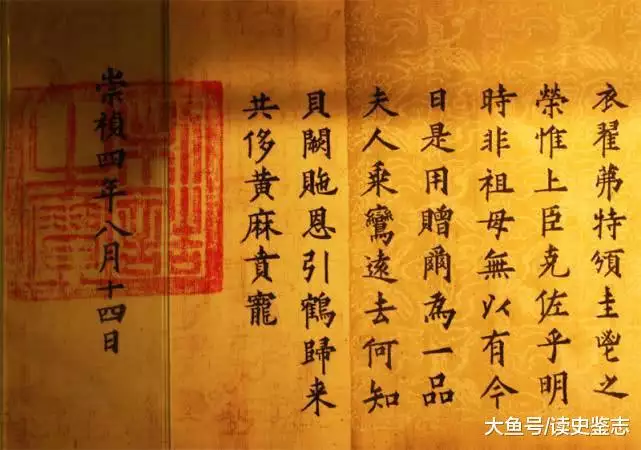 衣翟茀特頒圭鬯之
榮惟上臣克佐乎明
時非祖母無以有今
日是用贈爾為一品
夫人乘鸞遠去何知
貝闕貤恩引鶴歸来
共侈黄麻賁寵
崇禎四年八月十四日
大鱼号/读史鉴志